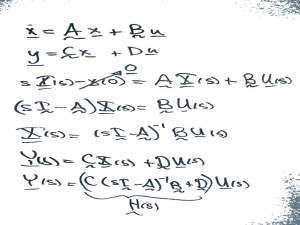 ẋ = A x + B u
y = C x + D u
s X(s) - x(0) = A X(s) + B U(s)
0
(sI - A) X(s) = B U(s)
X(s) = (sI - A)⁻¹ B U(s)
Y(s) = C X(s) + D U(s)
Y(s) = (C (sI - A)⁻¹ B + D) U(s)
H(s)